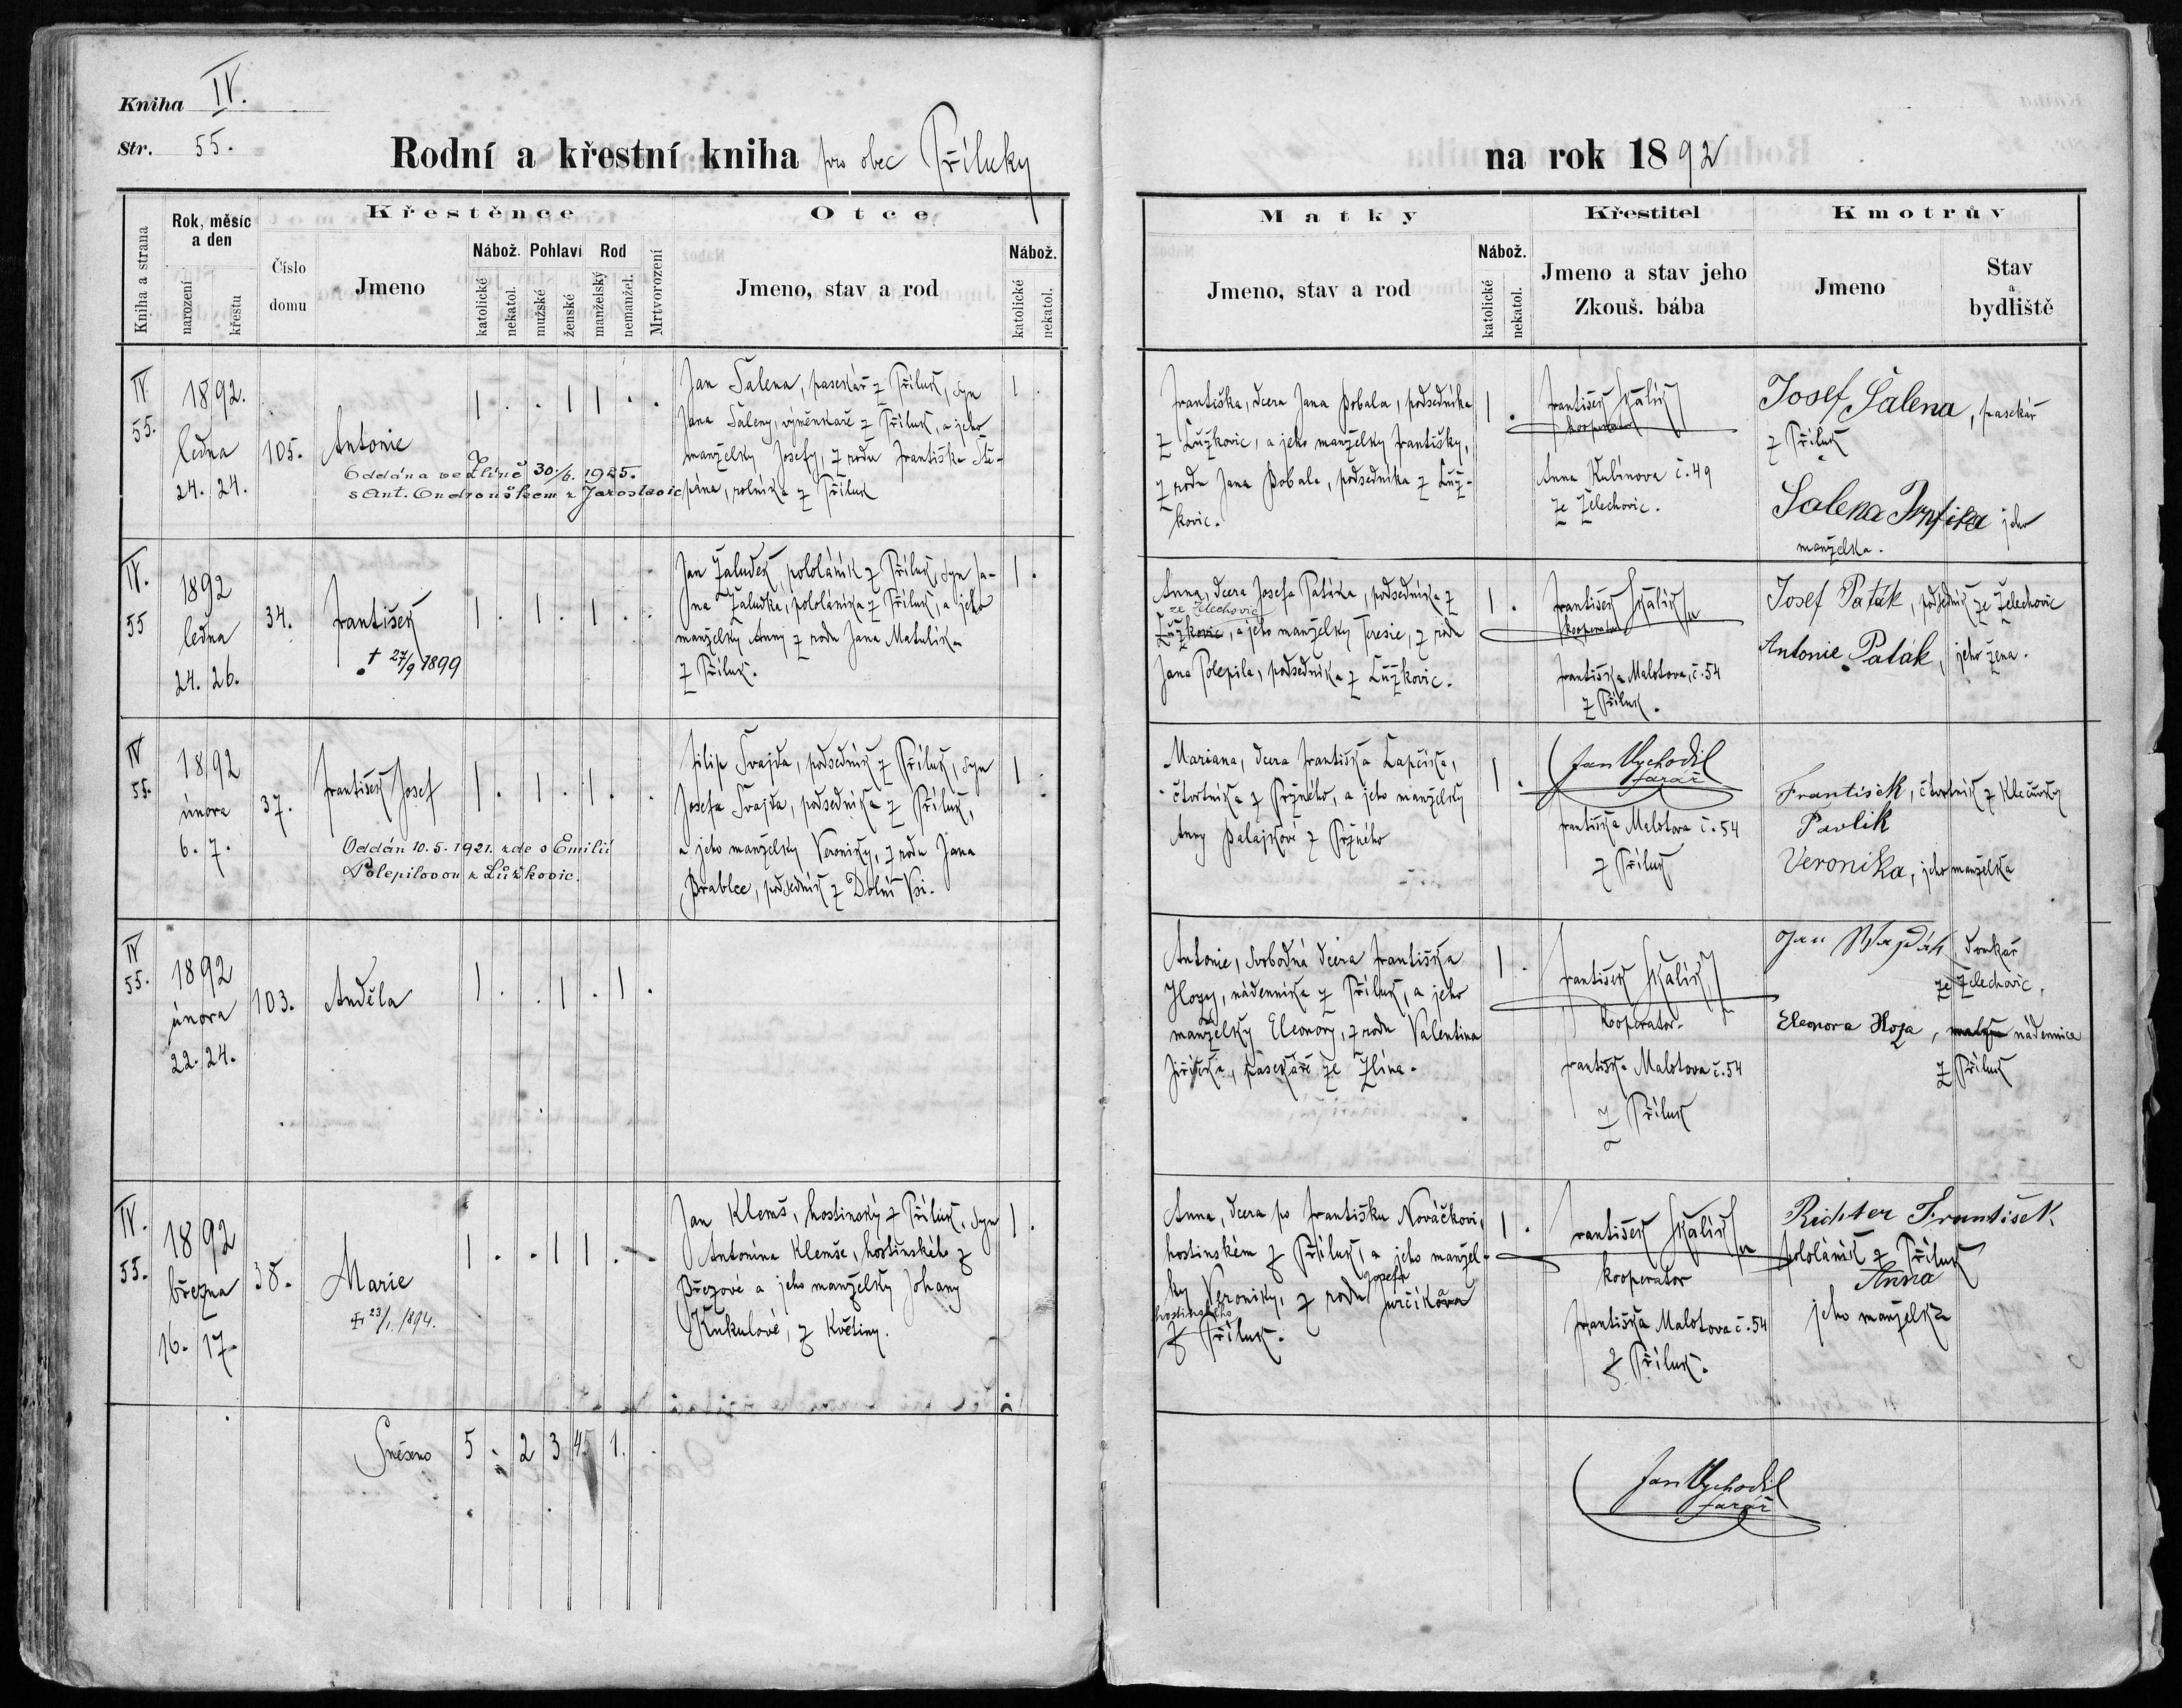 Kniha IV.
Str. 55.
Rodní a křestní kniha pro obec Příluky
na rok 1892
Kniha a strana
Rok, měsíc a den
narození
křestu
Křestěnce
Číslo domu
Jmeno
Nábož.
katolické
nekatol.
Pohlaví
mužské
ženské
Rod
manželský
nemanžel.
Mrtvorození
Otce
Jmeno, stav a rod
Nábož.
katolické
nekatol.
Matky
Jmeno, stav a rod
Nábož.
katolické
nekatol.
Křestitel
Jmeno a stav jeho
Zkouš. bába
Kmotrův
Jmeno
Stav
a
bydliště
IV
55.
1892.
ledna
24. 24.
105.
Antonie
Oddána ve Zlíně 30./6. 1925.
s Ant. Ondrouškem z Jaroslavic
1 . . 1 1 . .
Jan Šalena, pasekář z Příluk, syn
Jana Šaleny, výměnkaře z Příluk, a jeho
manželky Josefy, z rodu Františka Ště-
pána, rolníka z Příluk
1 .
Františka, dcera Jana Bobala, podsedníka
z Lužkovic, a jeho manželky Františky,
z rodu Jana Bobala, podsedníka z Luž-
kovic.
1 .
František Skalík
kooperator
Anna Kubínova č. 49
ze Želechovic.
Josef Šalena, pasekář
z Příluk
Šalena Frntiska jeho
manželka.
IV.
55
1892
ledna
24. 26.
34.
František
† 27/9 1899
1 . 1 . 1 . .
Jan Žaludek, pololáník z Příluk, syn Ja-
na Žaludka, pololáníka z Příluk, a jeho
manželky Anny z rodu Jana Matulíka
z Příluk.
1 .
Anna, dcera Josefa Patáka, podsedníka z
ze Želechovic
Lužkovic, a jeho manželky Teresie, z rodu
Jana Polepila, podsedníka z Lužkovic.
1 .
František Skalík
kooperator
Františka Malotova, č. 54
z Příluk.
Josef Paták, podsedník ze Želechovic
Antonie Paták, jeho žena.
IV
55.
1892
února
6. 7.
37.
František Josef
Oddán 10. 5. 1921. zde s Emilií
Polepilovou z Lůžkovic.
1 . 1 . 1 . .
Filip Švajda, podsedník z Příluk, syn
Josefa Švajda, podsedníka z Příluk,
a jeho manželky Veroniky, z rodu Jana
Brablce, podsedník z Dolní Vsi.
1 .
Mariana, dcera Františka Lapčíka,
čtvrtníka z Pržného, a jeho manželky
Anny Palajkové z Pržného
1 .
Jan Vychodil
farář
Františka Malotova č. 54
z Příluk
František, čtvrtník z Klečůvky
Pavlik
Veronika, jeho manželka
IV
55.
1892
února
22. 24.
103.
Anděla
1 . . 1 . 1 .
Antonie, svobodná dcera Františka
Hozy, nádenníka z Příluk, a jeho
manželky Eleonory, z rodu Valentina
Jiříčka, pasekáře ze Zlína.
1 .
František Skalík
kooperator.
Františka Malotova č. 54
z Příluk
Jan domkař
ze Želechovic.
Eleonora Hoza, nádennice
z Příluk
IV.
55.
1892
března
16. 17.
38.
Marie
† 23/1. 1894.
1 . . 1 1 . .
Jan Klemš, hostinský z Příluk, syn
Antonína Klemše, hostinského z
Březové a jeho manželky Johany
Kukulové, z Květiny.
1 .
Anna, dcera po Františku Nováčkovi,
hostinském z Příluk, a jeho manžel-
ky Veroniky, z rodu Josefa Jurčíkova
hostinského
z Příluk.
1 .
František Skalík
kooperator
Františka Malotova č. 54
z Příluk.
Richter František,
pololáník z Příluk
Anna
jeho manželka
Snešeno 5 . 2 3 4 1.
Jan Vychodil
farář